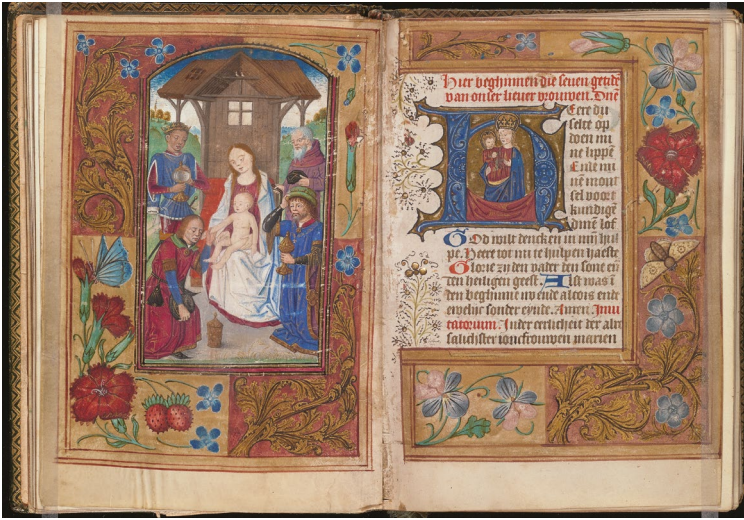 Hier beghinnen die seuen getidē
van onser lieuer vrouwen. Dñe
Heere du
selte op
doen mi
ne lippē
Ende mi
nē mont
sel voort
kundigē
dinē lof
God wilt dencken in mijn hul
pe. Heere tot mi te hulpen haeste
Glorie zy den vader den sone eñ
den heiligen geest. Alst was ī
den beghinne nv ende altois ende
ewelijc sonder eynde. Amen. Inui
tatorium. In der eerlicheit der alre
salichster ioncfrouwen marien